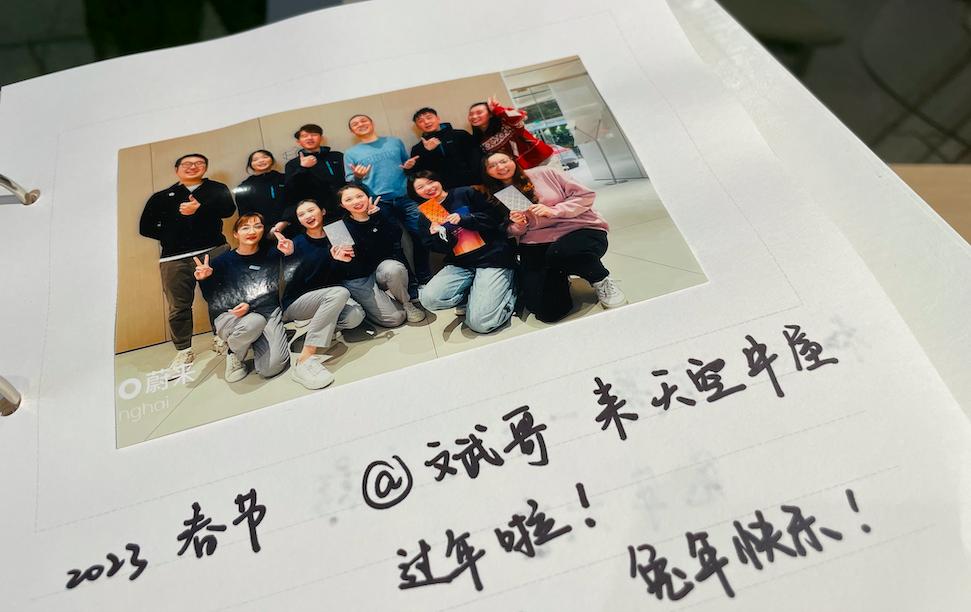 蔚来
nghai
2023 春节 @文武哥 来天空牛屋
过年啦! 兔年快乐!